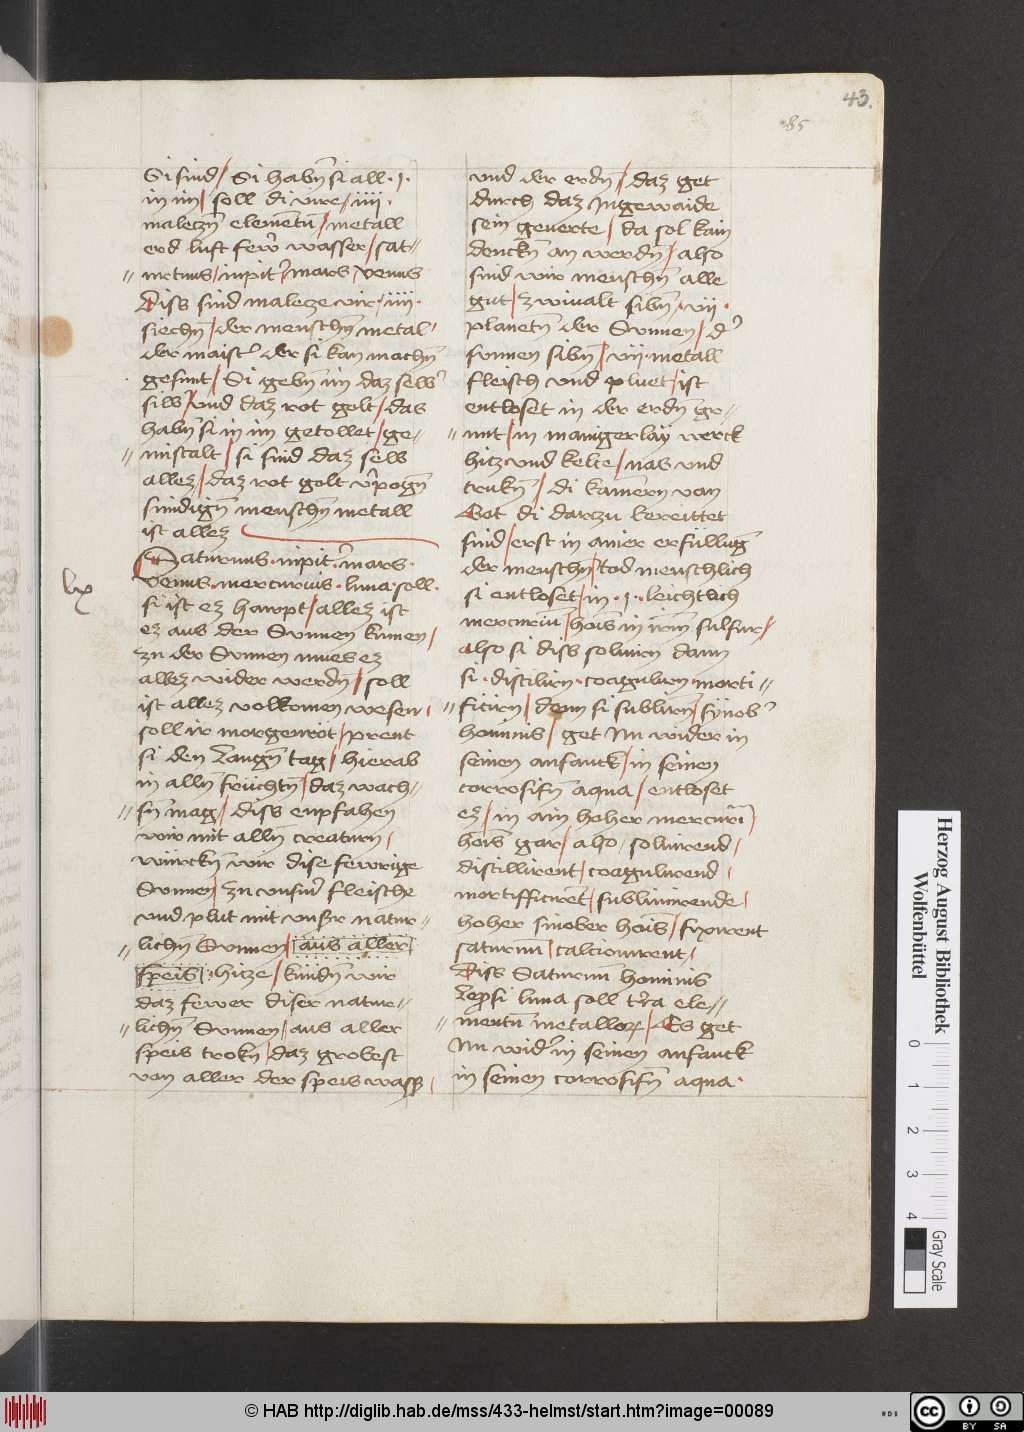 43.
85
Si sind / Si habn̄ si all · j ·
in im / soll di vire / iiii ·
maletzn̄ elemētn̄ / metall
erd luft fewr̄ wasser / sat-
urnus / iupit̄ / mars / venus
Diss sind maletze vir / iiii ·
siechn̄ / der menschn̄ metal
der maist̄ der si kan machn̄
gesunt / Si gebn̄ im daz selb
silb / vnd daz rot golt / das
habn̄ si in im getollet / ge-
mistalt / si sind daz selb
allez / daz rot golt
sundign̄ menschn̄ metall
ist allez
lx
Saturnus · iupit̄ · mars ·
venus · mercurius · luna · soll ·
si ist ez haupt / allez ist
ez aus der Sunnen kumen /
zu der Sunnen mues ez
allez wider werdn̄ / soll
ist allez volkomen wesen
soll ir morgenröt / prent
si den langn̄ tag / hierab
in alln̄ früchtn̄ / daz wach-
sn̄ mag / diss enpfahen
wir mit alln̄ creaturn /
würckn̄ wir dise fewrige
Sunnen / zu vnsm̄ fleische
vnd plut mit vnßr natur-
lichn̄ Sunnen / aus aller
speis / hitze / kündn̄ wir
daz fewer diser natur-
lichn̄ Sunnen / aus aller
speis trokn̄ / daz grobest
van aller der speis wass̄ /
vnd der erdn̄ / daz get
durch daz Ingewaide
sein geuerte / da sol kain
denckn̄ an werdn̄ / also
sind wir menschn̄ alle
gut / zwiualt sibn̄ · vii ·
planetn̄ der Sunnen / d̄
sunnen sibn̄ / vii · metall
fleisch vnd pluet / ist
entloset in der erdn̄ gr-
unt / in manigerlay werck
hitz vnd kelte / nas vnd
trukn̄ / di kamern van
Got di darzu bereittet
sind / erst in ainer erfüllūg
der menschn̄ / tod menschlich
si entloset / in · j · leichtlich
mercuriū / hoīs in irm̄ sulfur /
also si diss soluirn dann
si · distilirn · coagulirn · morti-
ficirn / denn si sublirn / synob̄
hominis / get Im wider in
seinen anfanck / in seinen
corrosifn̄ aqua / entloset
ez / in ain heher mercurī /
hoīs gar / also / soluirend /
distillirent / coagulirend /
mortifficirēt / sublimirende /
hoher sinober hoīs / fixirent
saturnū / calcionirent /
Diss Saturnū hominis
lepsi luna soll t̄ra ele-
mentū metallorꝝ / Es get
Im wid̄ in seinen anfanck
in seinen corrosifn̄ aqua ·
Herzog August Bibliothek
Wolfenbüttel
0 1 2 3 4
Gray Scale
© HAB http://diglib.hab.de/mss/433-helmst/start.htm?image=00089
HAB
cc BY SA